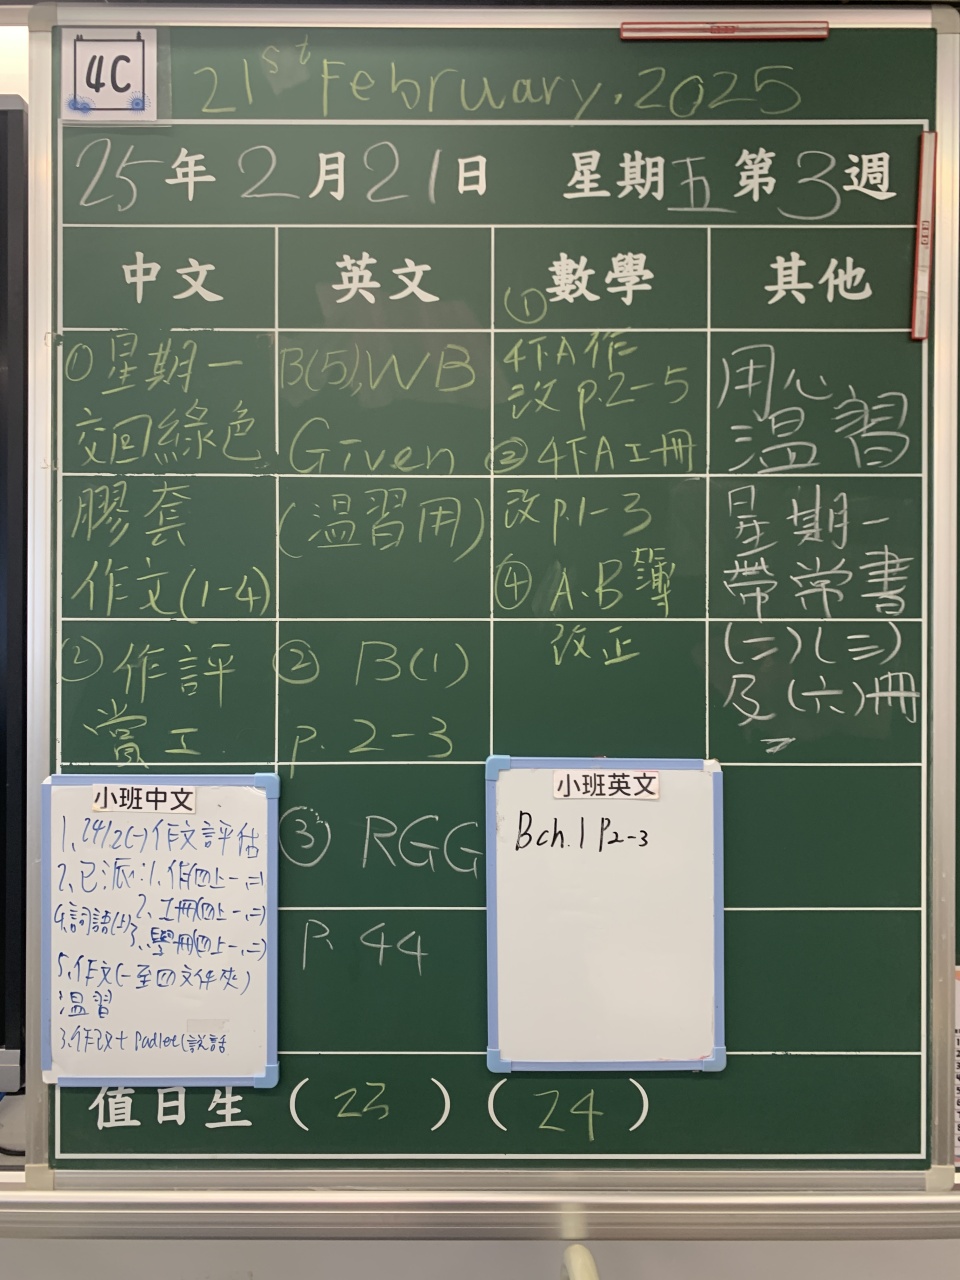 4C
21st February, 2025
25年2月21日 星期五第3週
中文 英文 數學 其他
①星期一
交回綠色
膠套
作文(1-4)
②作評
賞工
B(5),WB
Given
(溫習用)
② B(1)
p. 2-3
③ RGG
P. 44
①
4下A作
改 p.2-5
②4下A工冊
改 p.1-3
④ A.B簿
改正
用心
溫習
星期一
帶常書
(二)(三)
及(六)冊
小班中文
1、24/2(一)作文評估
2、已派:1、作(四上一,二)
2、工冊(四上一,二)
4、詞語(上)3、學冊(四上一,二)
5、作文(一至四文件夾)
溫習
3、作改+Padlet(說話
小班英文
Bch.1 P2-3
值日生 (23) (24)